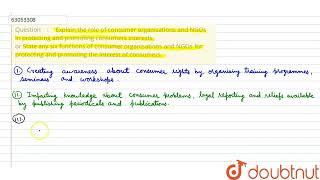 63053308
Question : Explain the role of consumer organisations and NGOs
in protecting and promoting consumers interests.
or State any six functions of consumer organisations and NGOs for
protecting and promoting the interest of consumers.
(i) Creating awareness about consumer rights by organising training programmes,
seminars and workshops.
(ii) Imparting knowledge about consumer problems, legal reporting and reliefs available
by publishing periodicals and publications.
(iii)
doubtnut